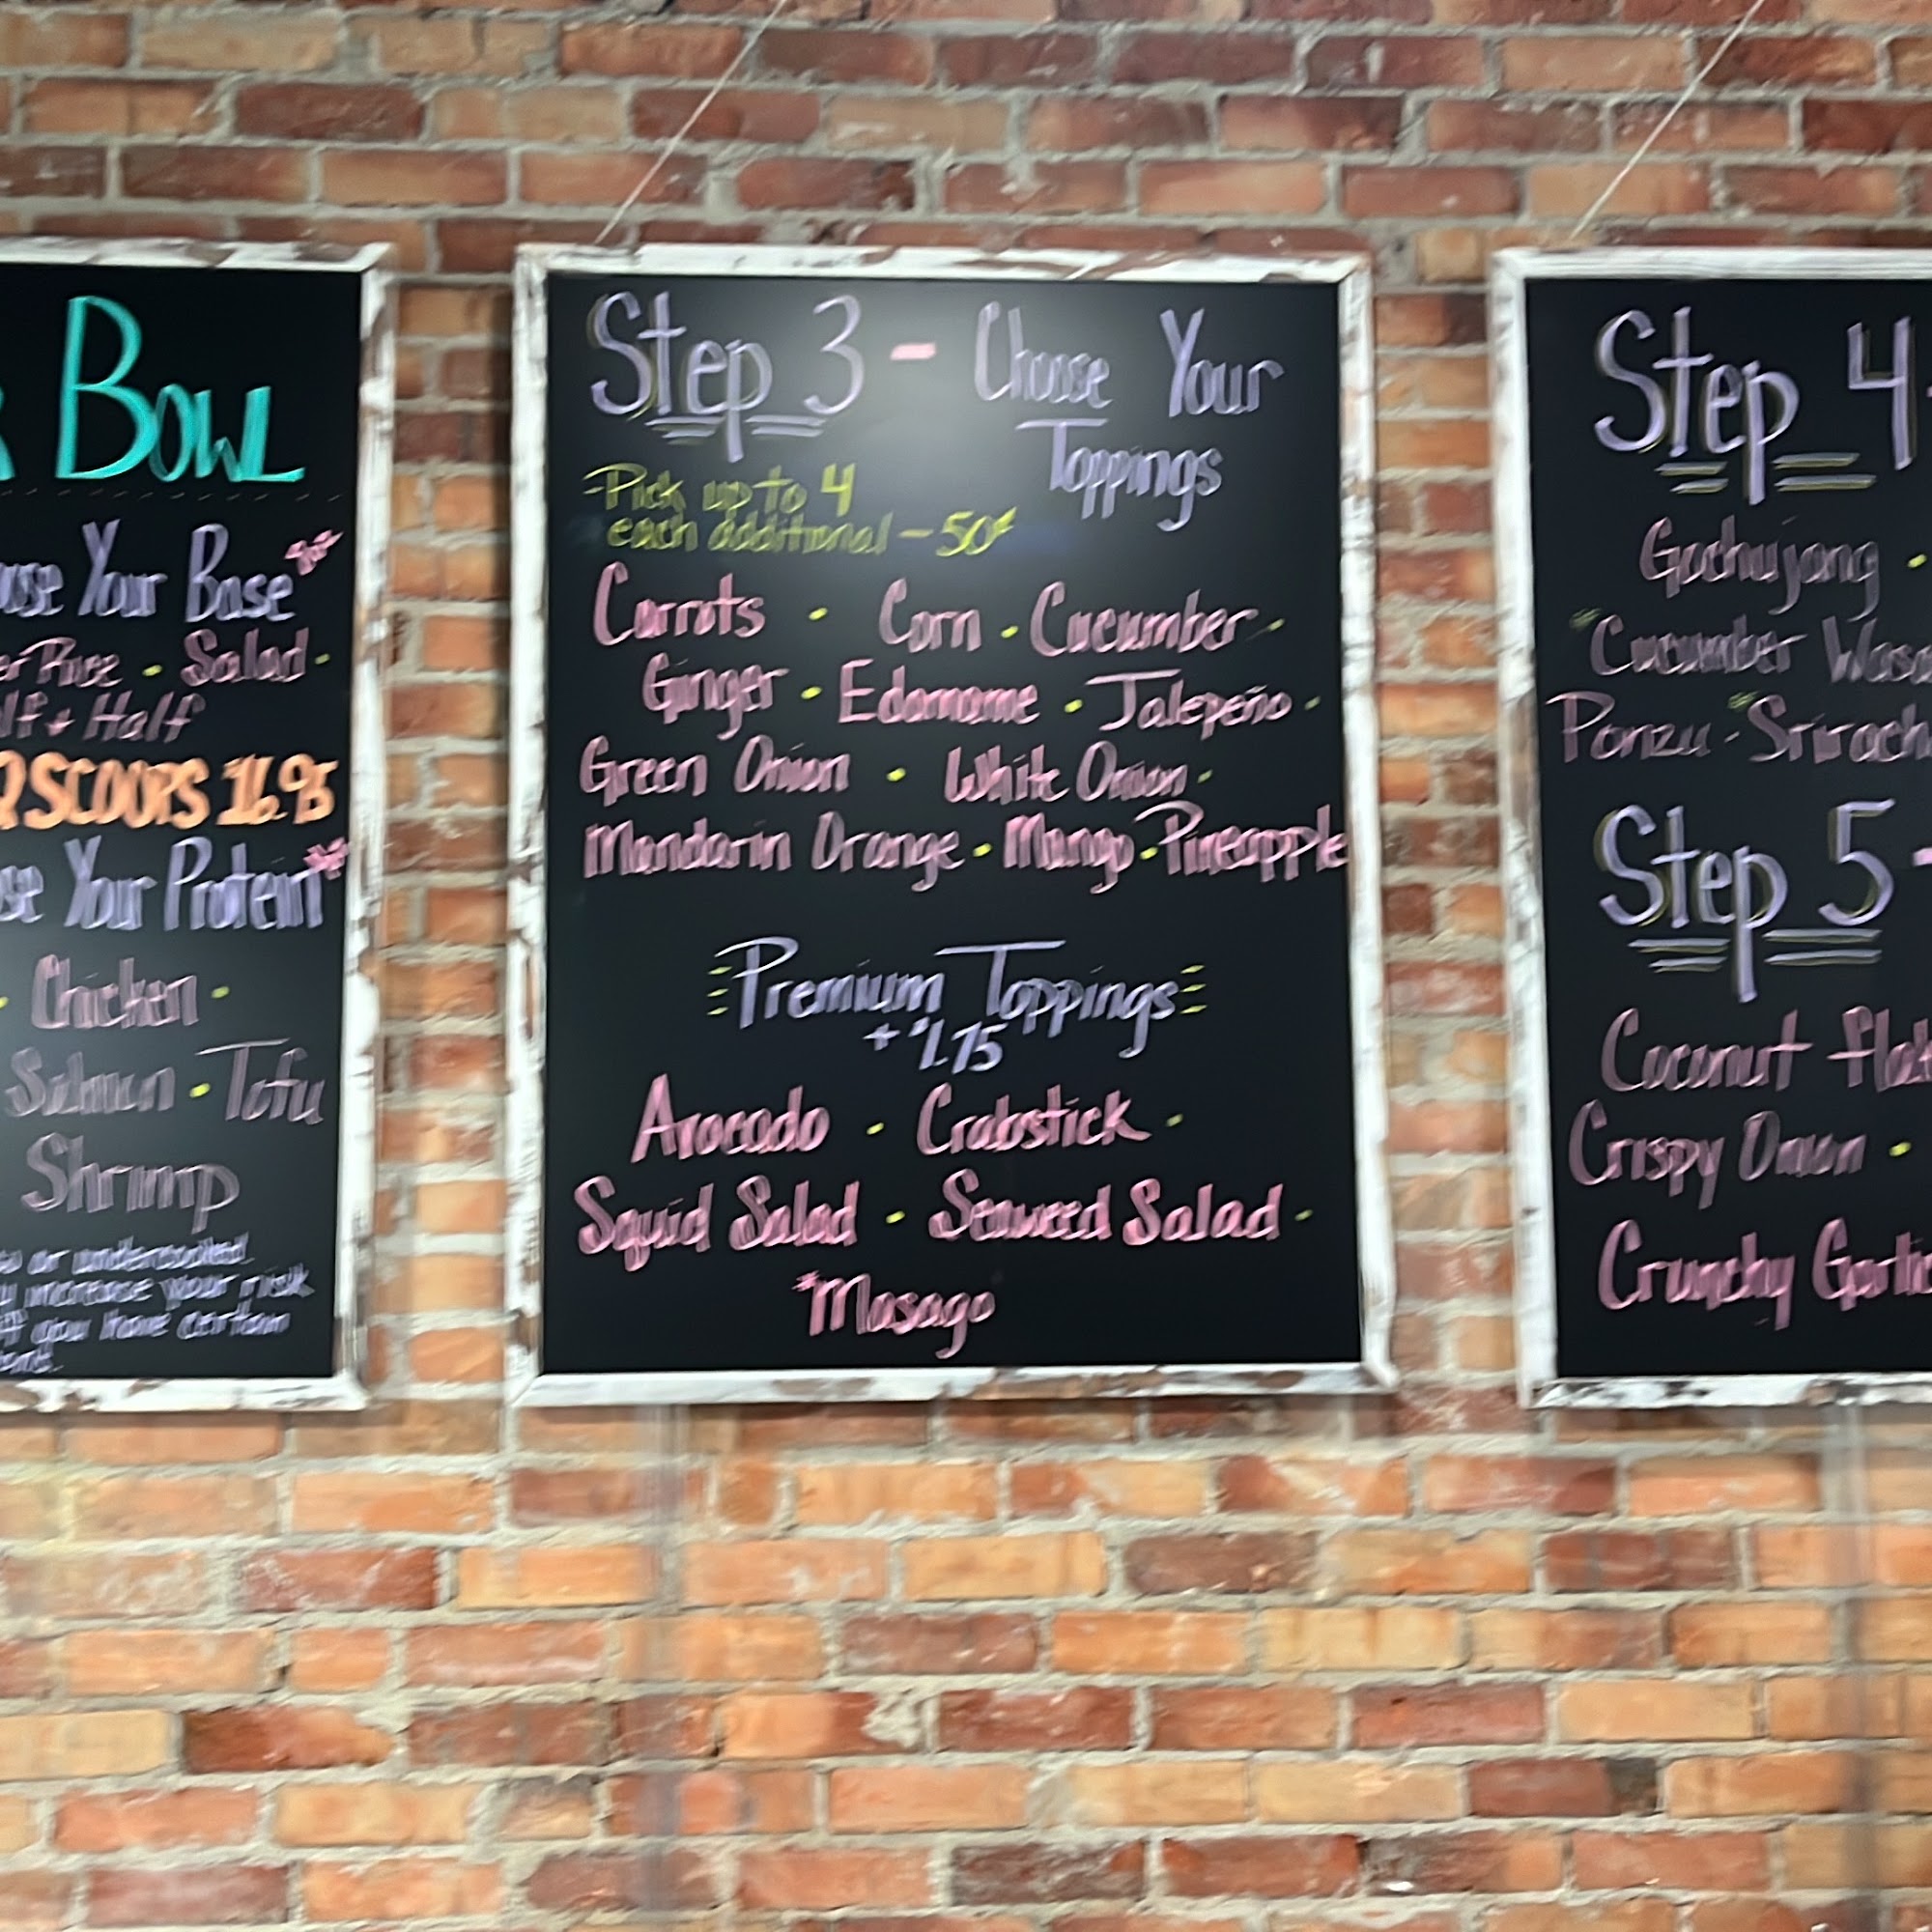 Bowl
Your Base
Rice • Salad •
+ Half
2 SCOOPS 16.95
Your Protein
• Chicken •
Salmon • Tofu
Shrimp
or undercooked
increase your risk
if you have certain
Step 3 - Choose Your
Toppings
-Pick up to 4
each additional - 50¢
Carrots • Corn • Cucumber •
Ginger • Edamame • Jalepeño •
Green Onion • White Onion •
Mandarin Orange • Mango • Pineapple
Premium Toppings
+ $1.75
Avocado • Crabstick •
Squid Salad • Seaweed Salad •
*Masago
Step 4
Gochujang •
Cucumber
Ponzu •
Step 5 -
Coconut
Crispy Onion •
Crunchy